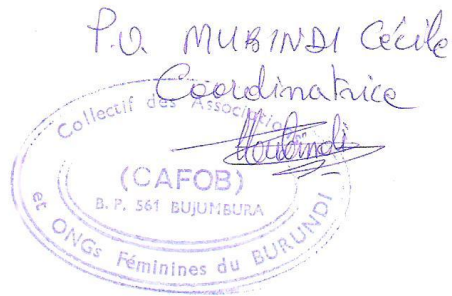 P.O. MUBINDI Cécile
Coordinatrice
Collectif des Associations
(CAFOB)
B. P. 561 BUJUMBURA
et ONGs Féminines du BURUNDI
Mubindi